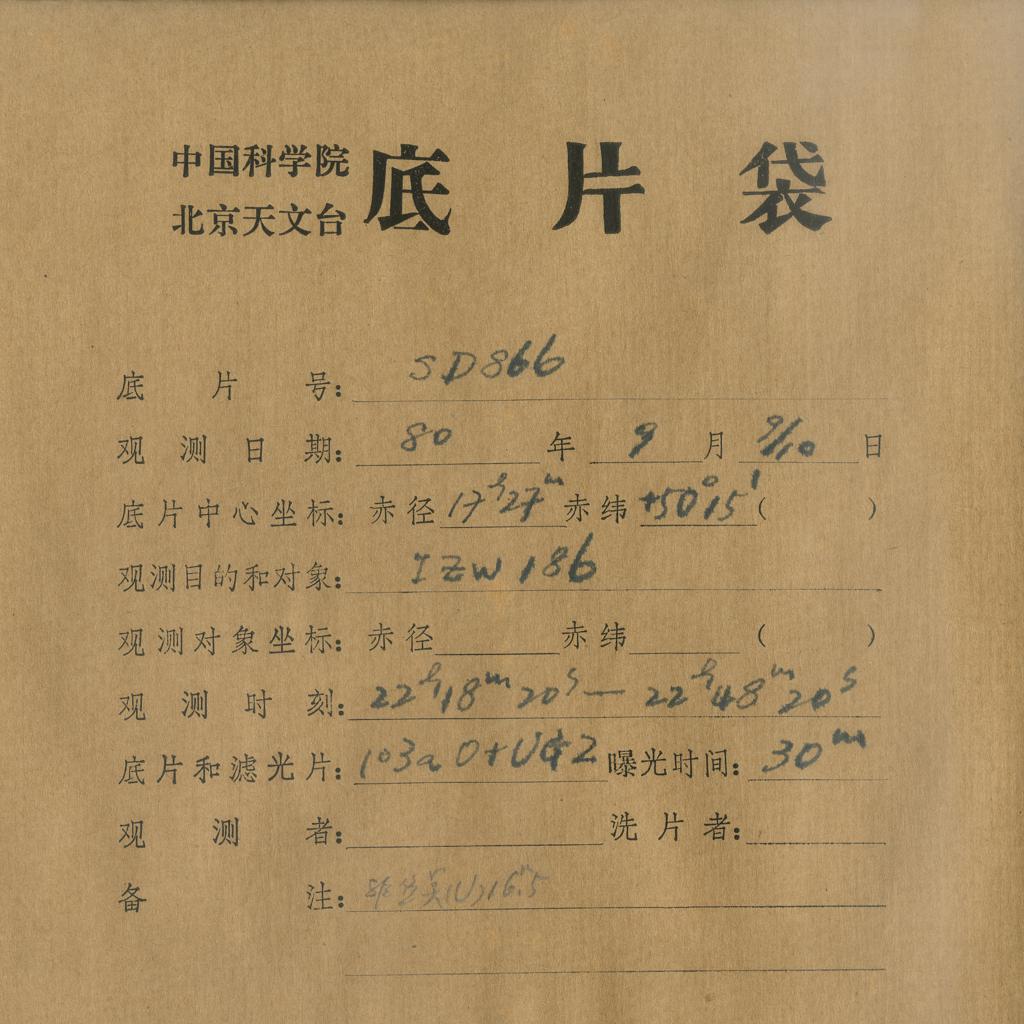 中国科学院
北京天文台
底片袋
底片号: SD866
观测日期: 80 年 9 月 9/10 日
底片中心坐标: 赤径 17h27m 赤纬 +50°15′ ( )
观测目的和对象: IZW 186
观测对象坐标: 赤径 赤纬 ( )
观测时刻: 22h18m20s — 22h48m20s
底片和滤光片: 103a O+UG2 曝光时间: 30m
观测者: 洗片者:
备注: (U)16m.5